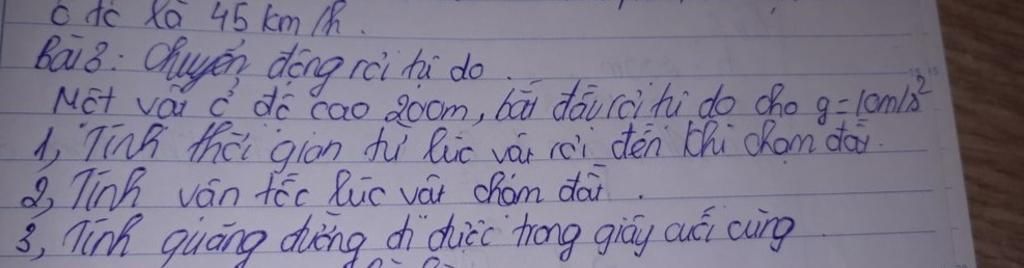 ô tô là 45 km/h.
Bài 3: Chuyển động rơi tự do.
Một vật ở độ cao 200m, bắt đầu rơi tự do cho g = 10m/s²
1, Tính thời gian từ lúc vật rơi đến khi chạm đất.
2, Tính vận tốc lúc vật chạm đất.
3, Tính quãng đường đi được trong giây cuối cùng